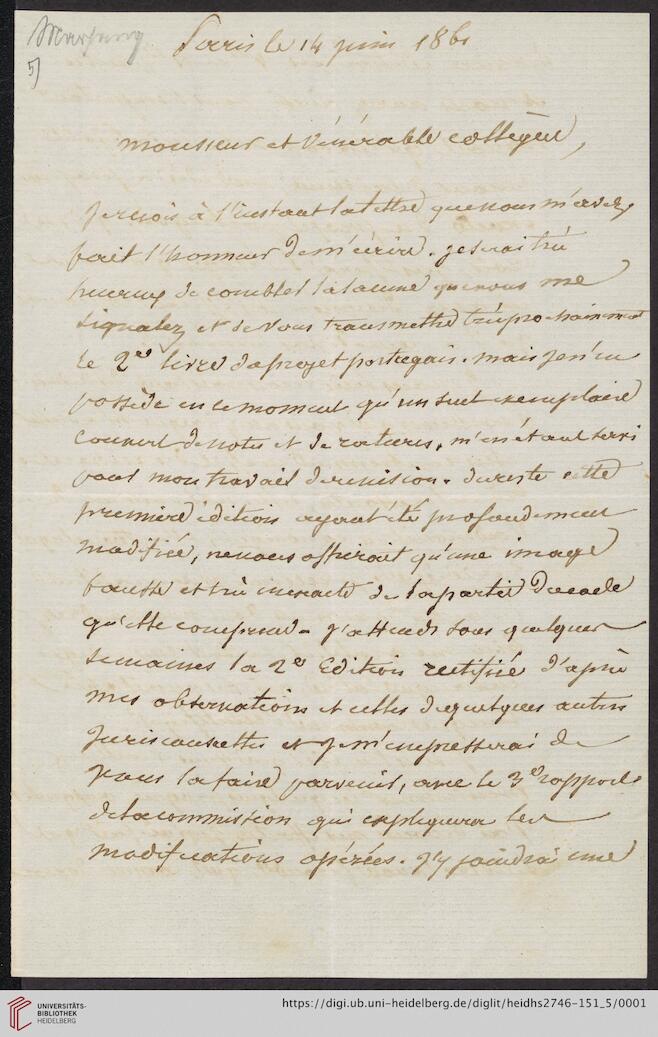 5)
Paris le 14 juin 1861
monsieur et vénérable collègue,
Je reçois à l'instant la lettre que vous m'avez
fait l'honneur de m'écrire. je serai très
heureux de combler la lacune que vous me
signalez et de vous transmettre très prochainement
le 2e livre du projet portugais. mais je n'en
possède en ce moment qu'un seul exemplaire
couvert de notes et de ratures, m'en étant servi
pour mon travail de révision. du reste cette
première édition ayant été profondément
modifiée, ne vous offrirait qu'une image
fausse et très inexacte de la partie du code
qu'elle comprend - j'attends sous quelques
semaines la 2e Edition rectifiée d'après
mes observations et celles de quelques autres
Jurisconsultes et je m'empresserai de
vous la faire parvenir, avec le 3e rapport
de la commission qui expliquera les
modifications opérées. j'y joindrai une
UNIVERSITÄTS-
BIBLIOTHEK
HEIDELBERG
https://digi.ub.uni-heidelberg.de/diglit/heidhs2746-151_5/0001